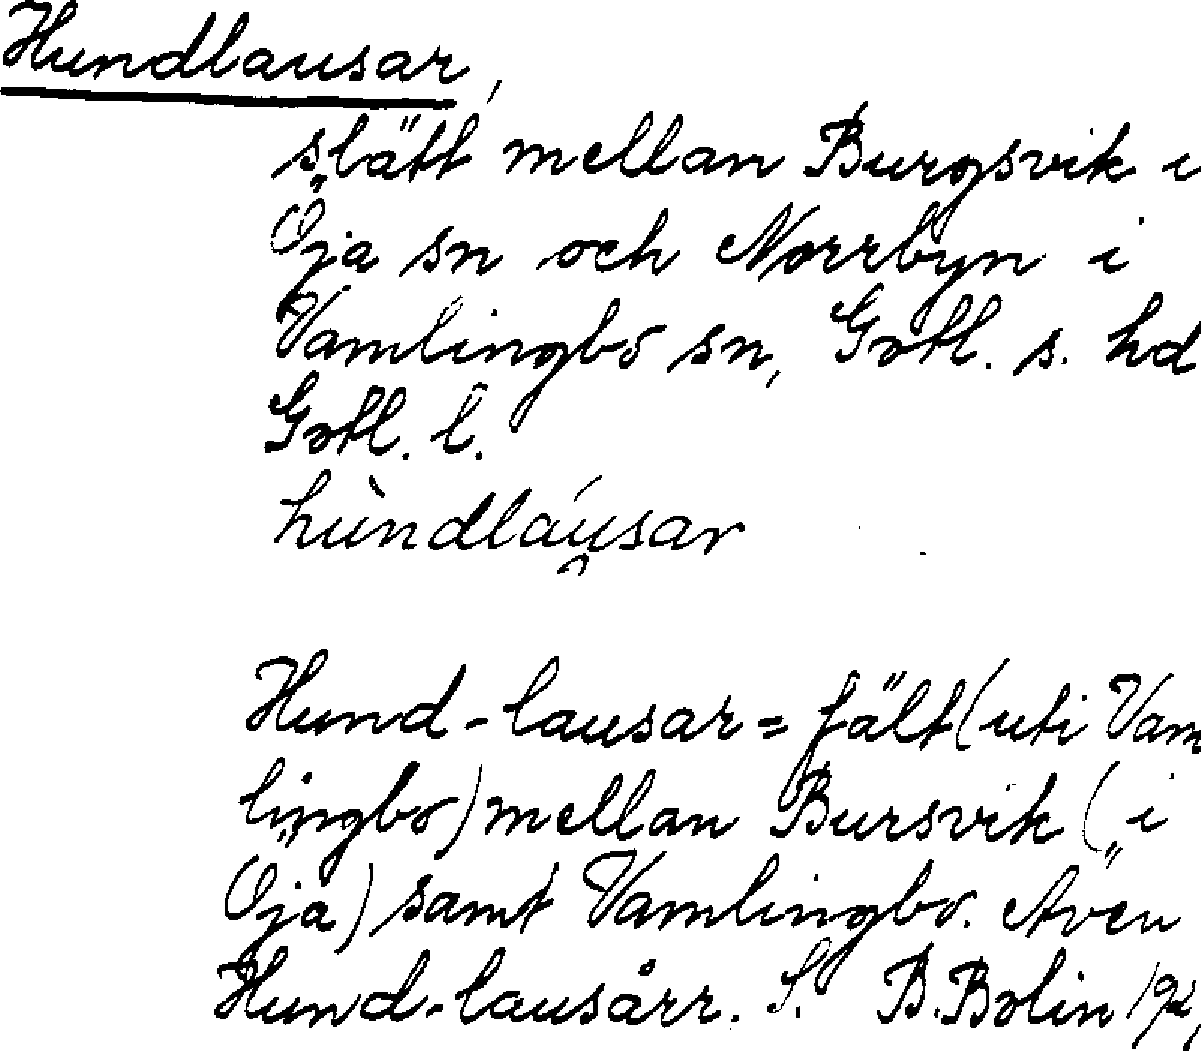 Hundlausar,
slätt mellan Burgsvik i
Öja sn och Norrbyn i
Vamlingbo sn, Gotl. s. hd
Gotl. l.
hùndláu̯sar
Hund-lausar = fält (uti Vam
lingbo) mellan Bursvik (i
Öja) samt Vamlingbo. Även
Hund-lausårr. S. B. Bolin